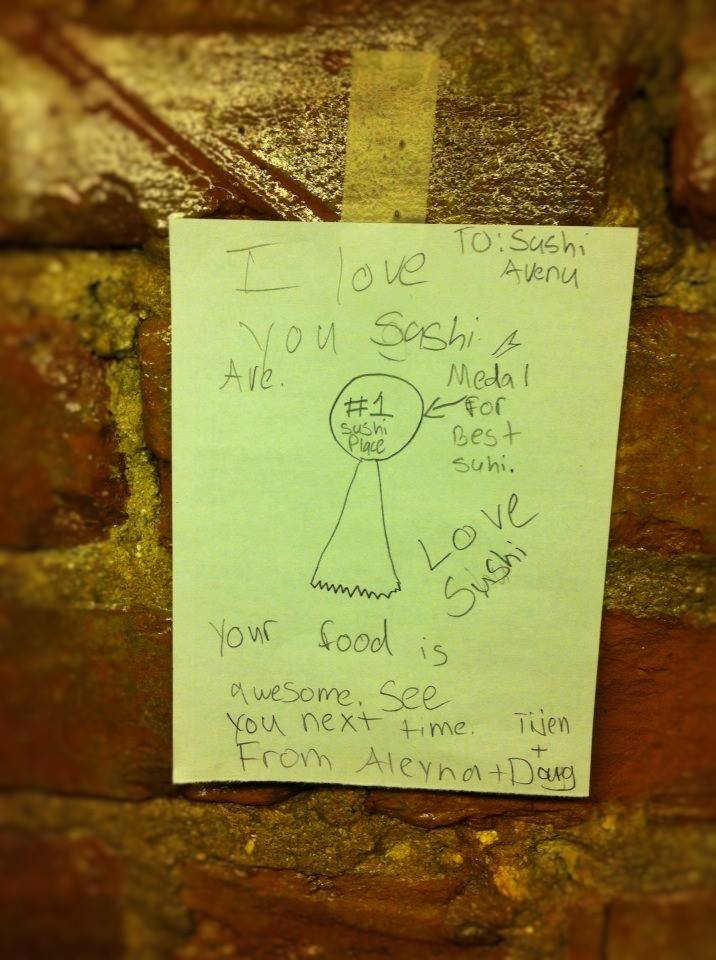 TO: Sushi
Avenu
I love
you Sushi
Ave.
#1
sushi
Place
Medal
For
Best
suhi.
Love
Sushi
Your food is
awesome. See
you next time.
From Aleyna + Doug
Tijen
+